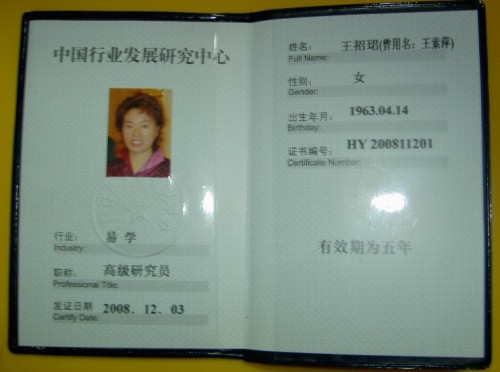 中国行业发展研究中心
行业： 易 学
Industry:
职称： 高级研究员
Professional Title:
发证日期 2008. 12. 03
Certify Date:
姓名： 王招珺(曾用名：王素萍)
Full Name:
性别： 女
Gender:
出生年月： 1963.04.14
Birthday:
证书编号： HY 200811201
Certificate Number:
有效期为五年